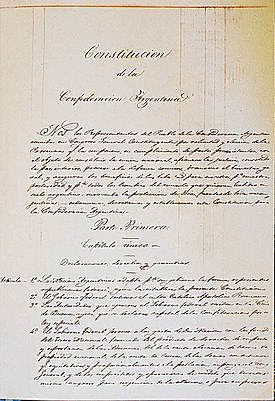 Constitucion
de la
Confederacion Argentina
Nos los Representantes del Pueblo de la Confederacion Argentina
reunidos en Congreso General Constituyente por voluntad y eleccion de las
Provincias que la componen, en cumplimiento de pactos preexistentes, con
el objeto de constituir la union nacional, afianzar la justicia, consolidar
la paz interior, proveer a la defensa comun, promover el bienestar
general, y asegurar los beneficios de la libertad para nosotros, para nuestra
posteridad y para todos los hombres del mundo que quieran habitar en
suelo argentino: invocando la proteccion de Dios, fuente de toda razon
y justicia: ordenamos, decretamos y establecemos esta Constitucion para
la Confederacion Argentina.
Parte Primera
Capitulo unico
Declaraciones, derechos y garantias
Articulo 1º La Nacion Argentina adopta para su gobierno la forma representativa
republicana federal, segun la establece la presente Constitucion.
2º El Gobierno federal sostiene el culto Catolico Apostolico Romano.
3º Las autoridades que ejercen el Gobierno federal residen en la Ciudad
de Buenos Ayres, que se declara capital de la Confederacion por una
ley especial.
4º El Gobierno federal provee a los gastos de la Nacion con los fondos
del Tesoro Nacional, formado del producto de derechos de importacion
y esportacion
propiedad nacional,